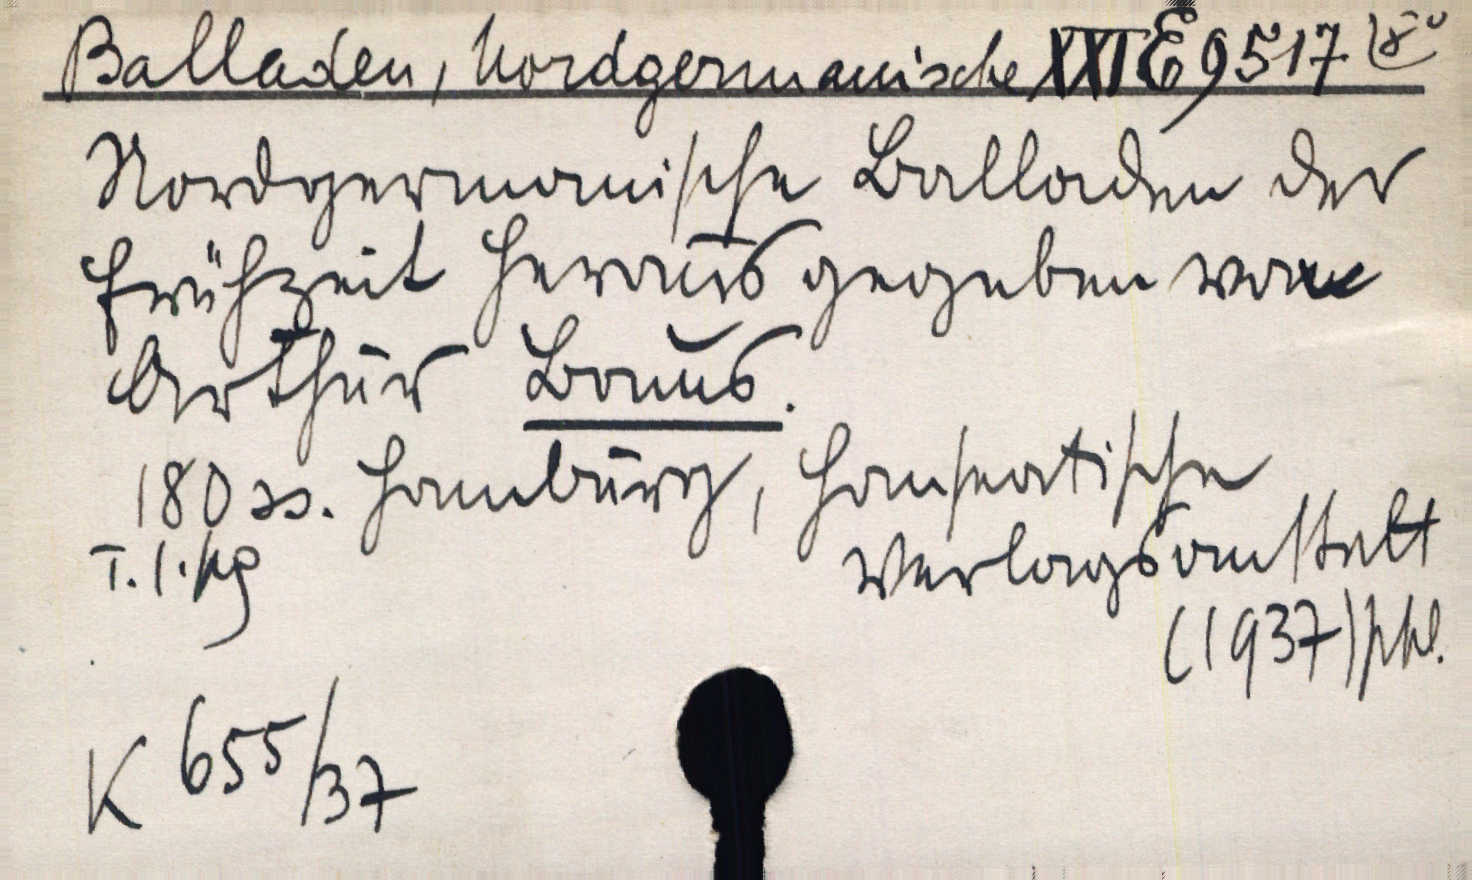 Balladen, Nordgermanische XXI E 9517
Nordgermanische Balladen der
Frühzeit herausgegeben von
Arthur Bonus.
180 SS. Hamburg, Hanseatische
Verlagsanstalt
(1937)
K 655/37